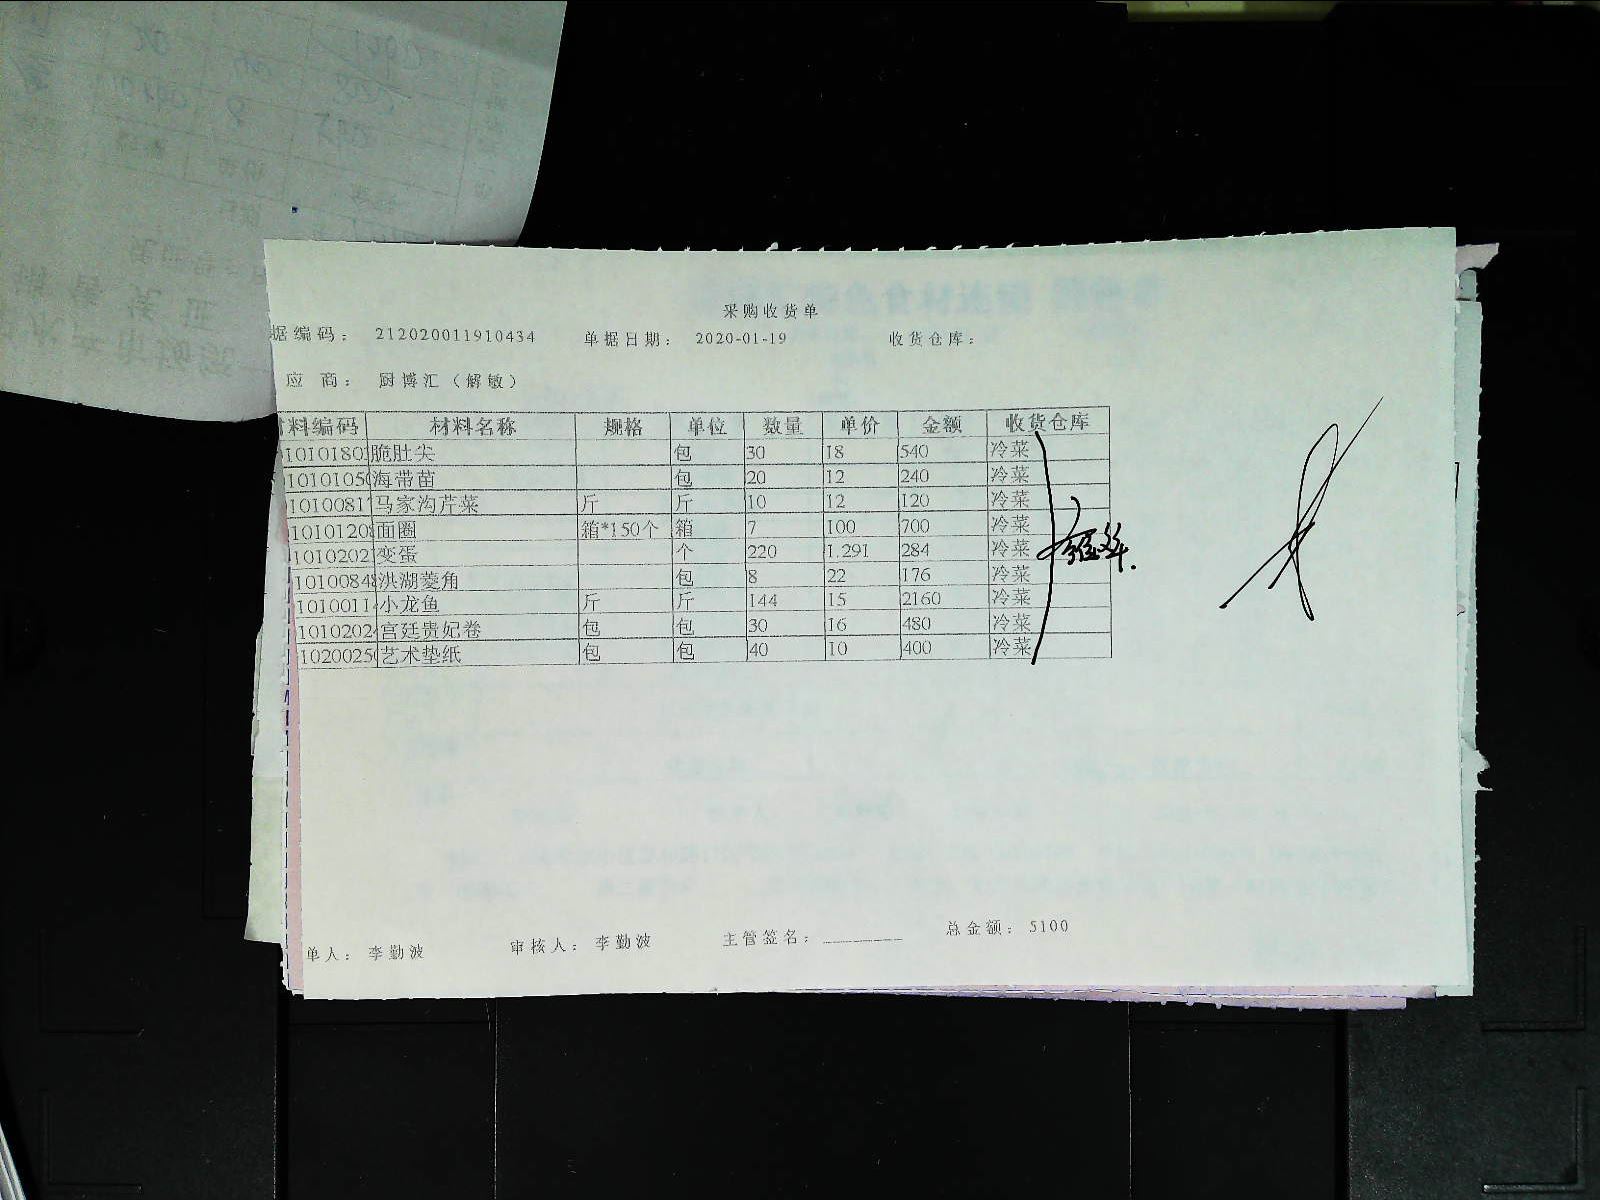 采购收货单
据编码： 212020011910434 单据日期： 2020-01-19 收货仓库：
应 商： 厨博汇（解敏）
料编码 材料名称 规格 单位 数量 单价 金额 收货仓库
1010180 脆肚尖 包 30 18 540 冷菜
1010105 海带苗 包 20 12 240 冷菜
1010081 马家沟芹菜 斤 斤 10 12 120 冷菜
1010120 面圈 箱*150个 箱 7 100 700 冷菜
1010202 变蛋 个 220 1.291 284 冷菜
1010084 洪湖菱角 包 8 22 176 冷菜
1010011 小龙鱼 斤 斤 144 15 2160 冷菜
1010202 宫廷贵妃卷 包 包 30 16 480 冷菜
1020025 艺术垫纸 包 包 40 10 400 冷菜
单人： 李勤波 审核人： 李勤波 主管签名： 总金额： 5100